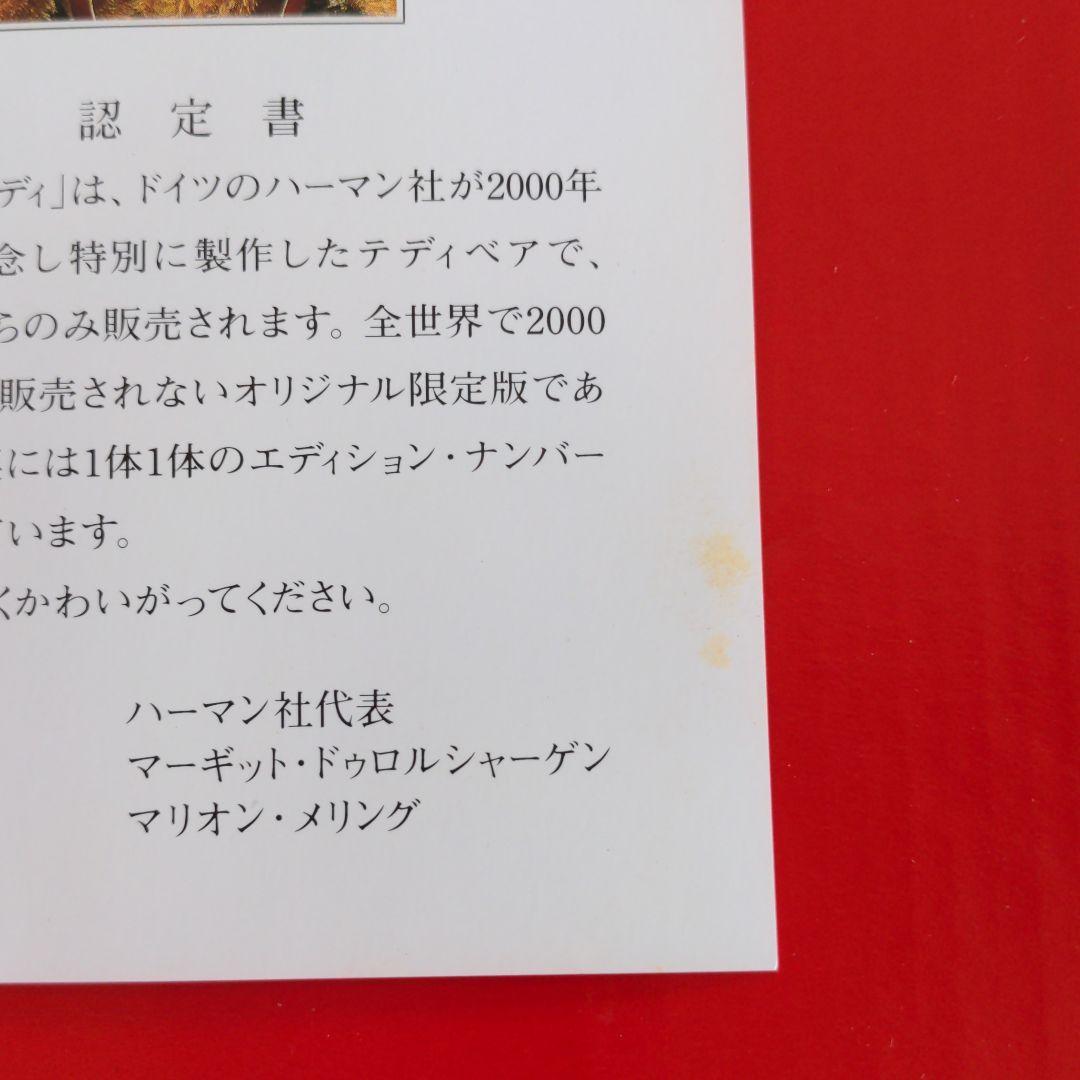 認定書
ディ」は、ドイツのハーマン社が2000年
念し特別に製作したテディベアで、
らのみ販売されます。全世界で2000
販売されないオリジナル限定版であ
には1体1体のエディション・ナンバー
ています。
くかわいがってください。
ハーマン社代表
マーギット・ドゥロルシャーゲン
マリオン・メリング